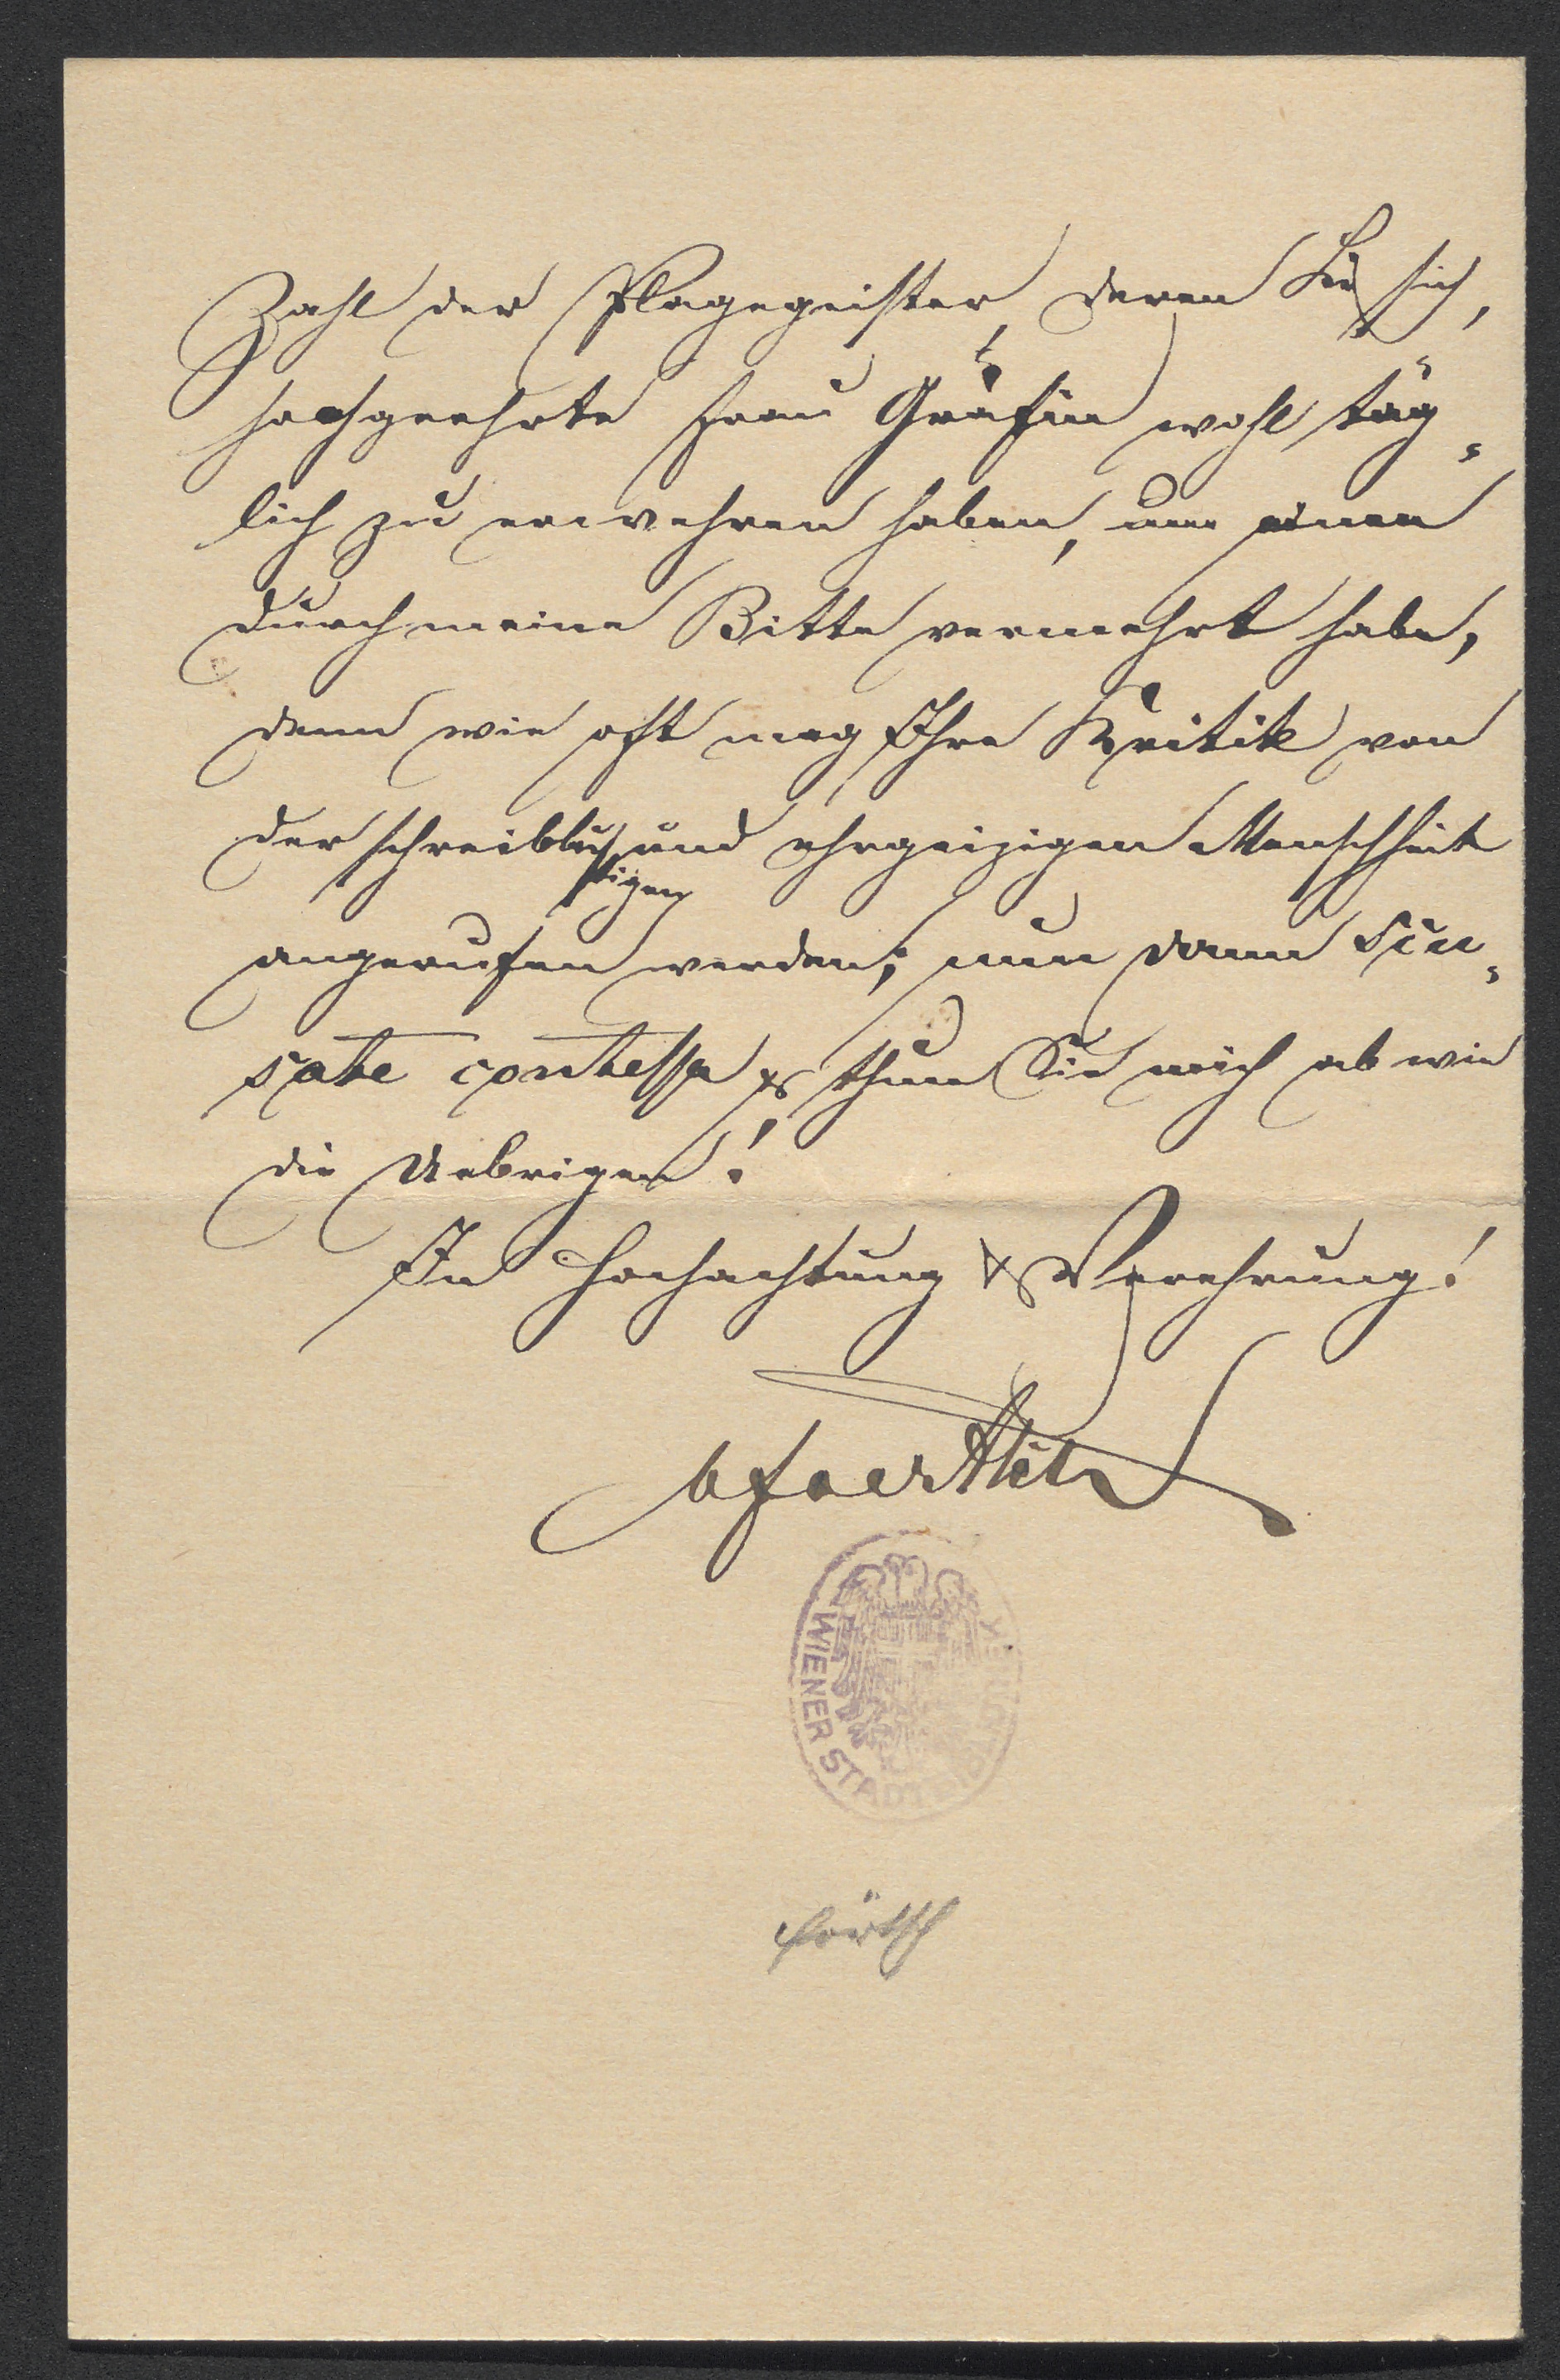 Zahl der Plagegeister, deren Sie sich,
hochgeehrte Frau Gräfin wohl täg=
lich zu erwehren haben, um einen
durch meine Bitte vermehrt habe,
denn wie oft mag Ihre Kritik von
der schreiblustigen und ehrgeizigen Menschheit
angerufen werden; nun dann Scu=
sate contessa & thun Sie mich ab wie
die Uebrigen!
In Hochachtung & Verehrung!
WIENER STADTBIBLIOTHEK